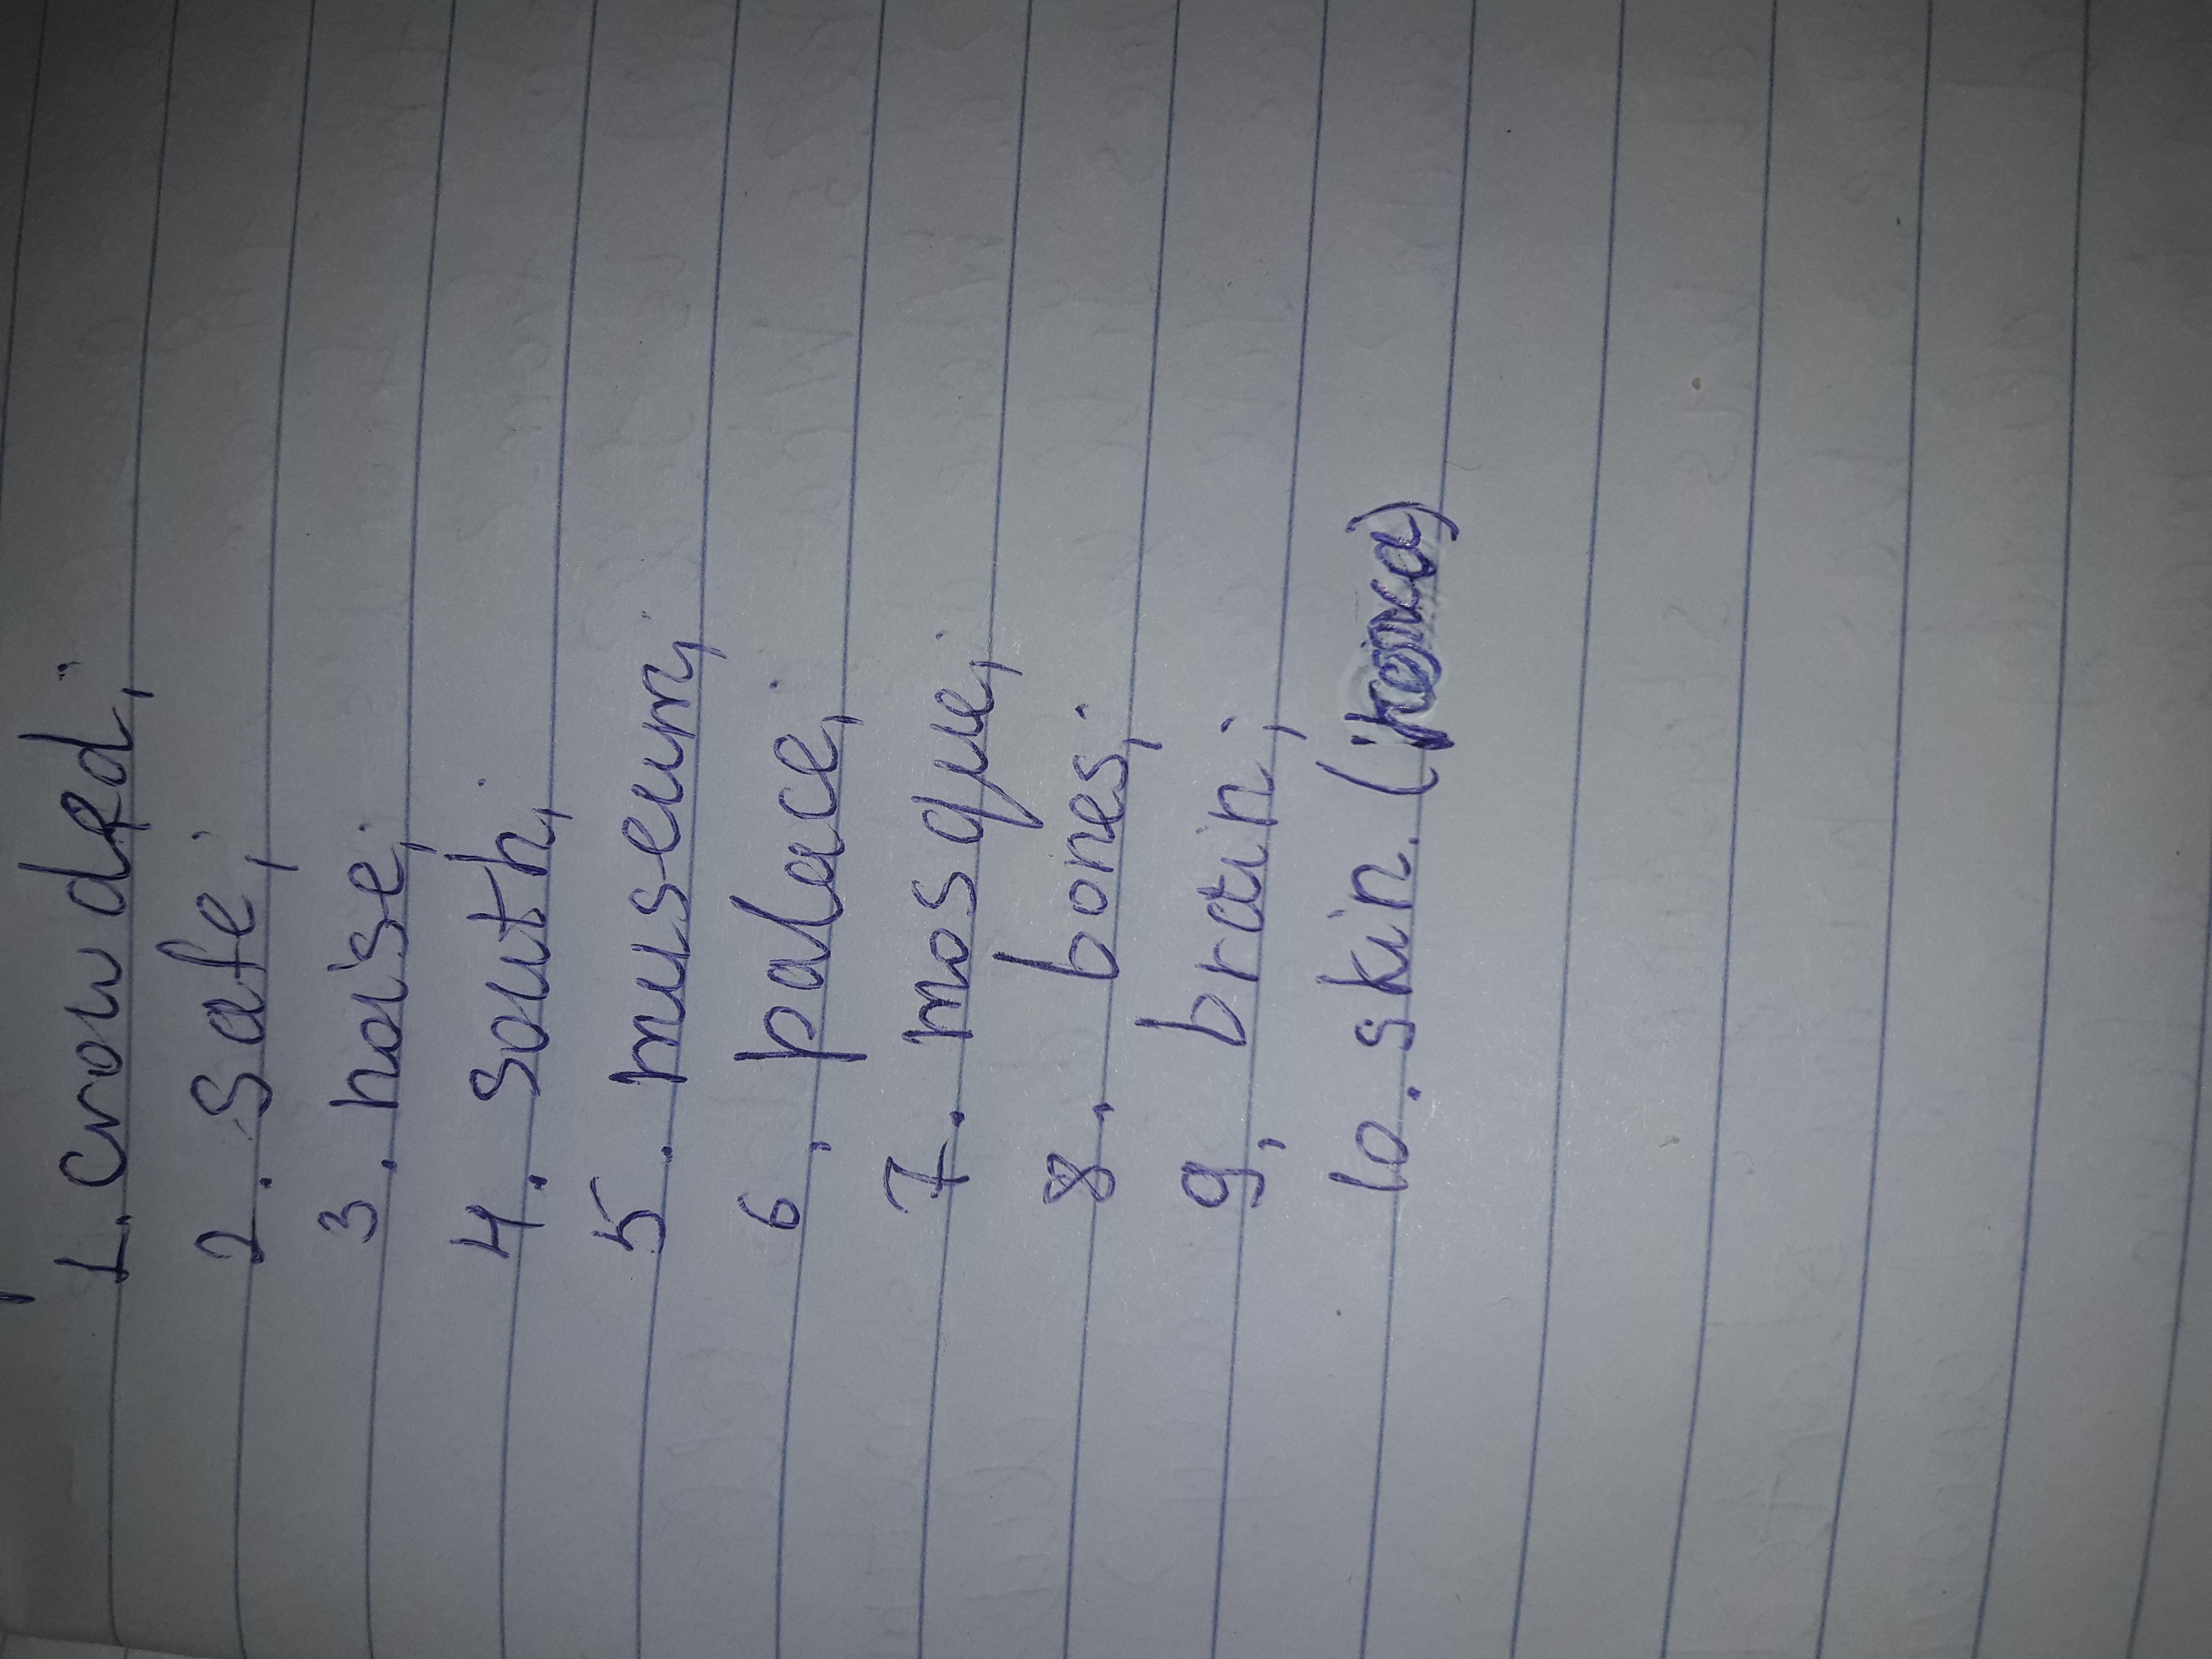 1. Crowded;
2. Safe;
3. noise;
4. South;
5. museum;
6, palace;
7. mosque;
8. bones;
9, brain;
10. skin. (кожа)